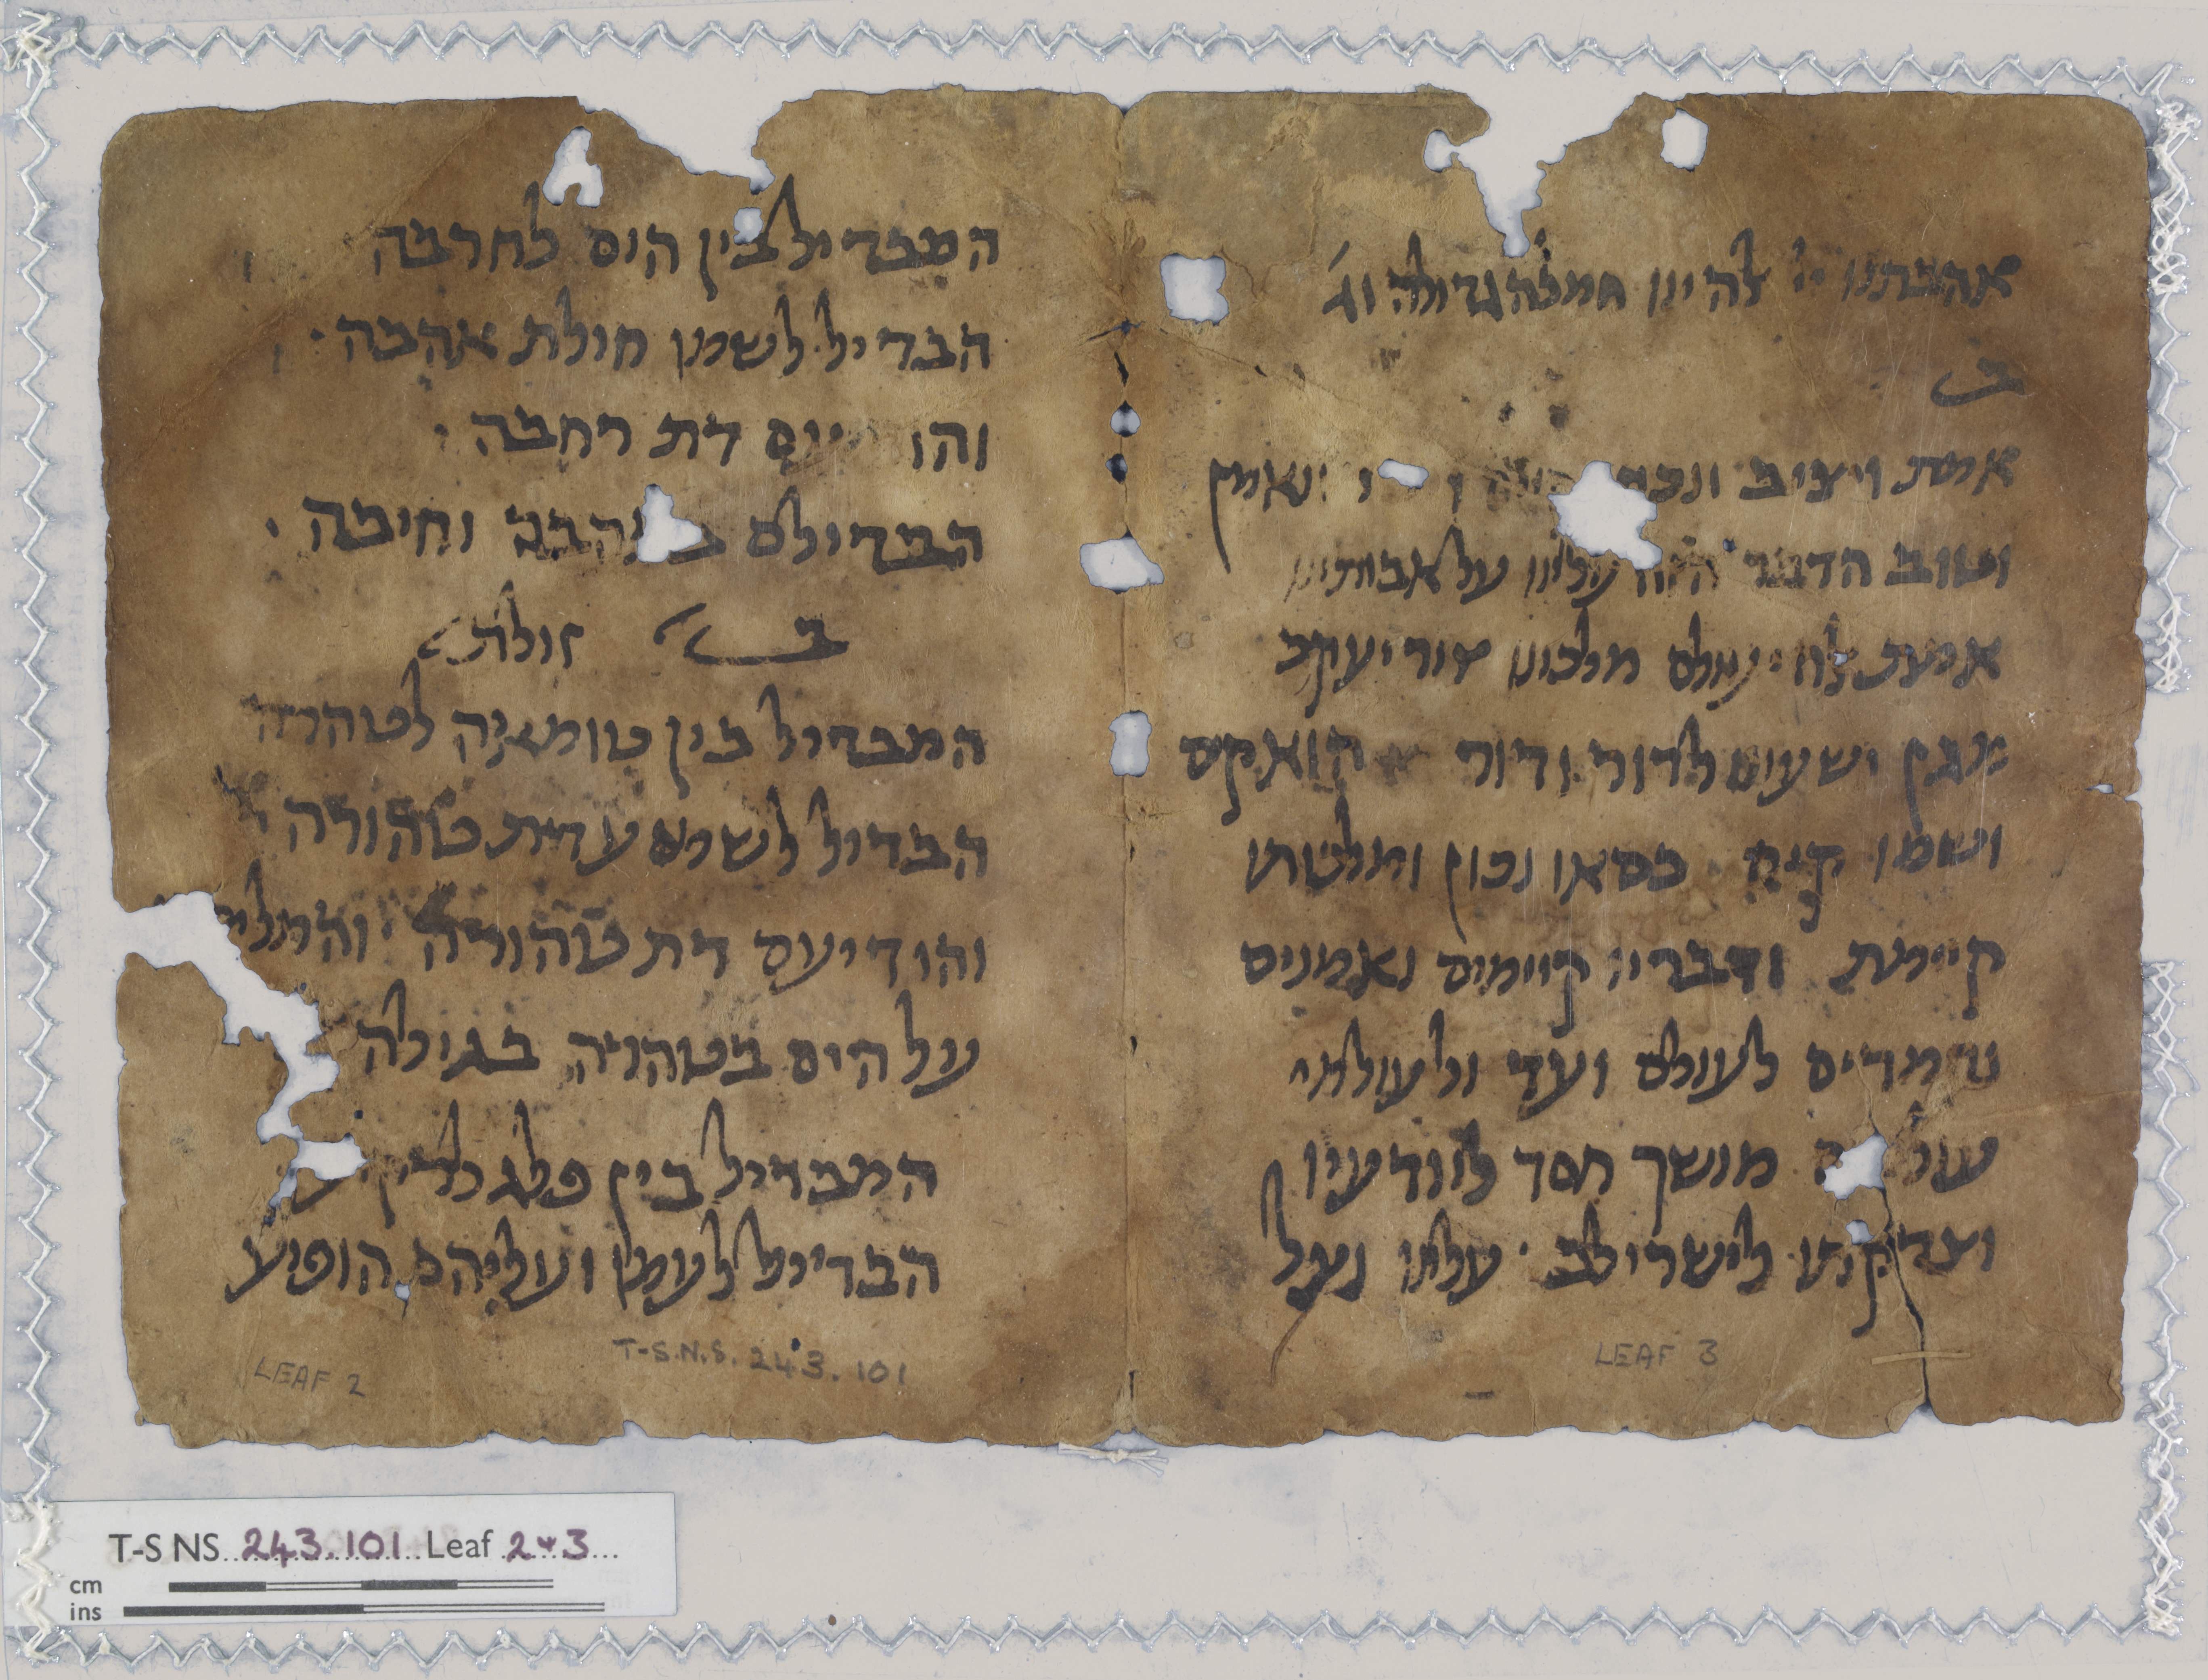 אהבתנו יי להינו חמלה גדולה וג
ב
אמת ויציב ונכון ונאמן
וטוב הדבר הזה עלינו על אבותינו
אמת להי עולם מלכינו צור יעקב
מגן ישעינו לדור ודור הוא קים
ושמו קים כסאו נכון ומלכותו
קיימת ודבריו קויימים נאמנים
נחמדים לעולם ועד ולעולמי
מושך חסד ליודעיו
וצדקתו לישרי לב עלינו ועל
LEAF 3
המבדיל בין הים לחרבה
הבדיל לשמו חולת אהבה
דת רחבה
הבדילם וחיבה
ב זולת
המבדיל בין טומאה לטהרה
הבדיל לשמו עדת טהורה
והודיעם דת טהורה
על הים בטהרה בגילה
המבדיל בין פלג
הבדיל לעמו ועליהם הופיע
T-S.N.S. 243.101
LEAF 2
T-S NS 243.101 Leaf 2+3
cm
ins